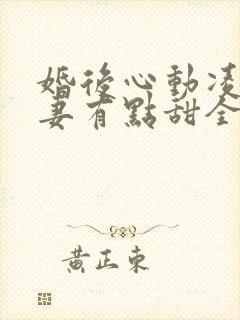 婚後心動凌
妻有點甜全
黃正東